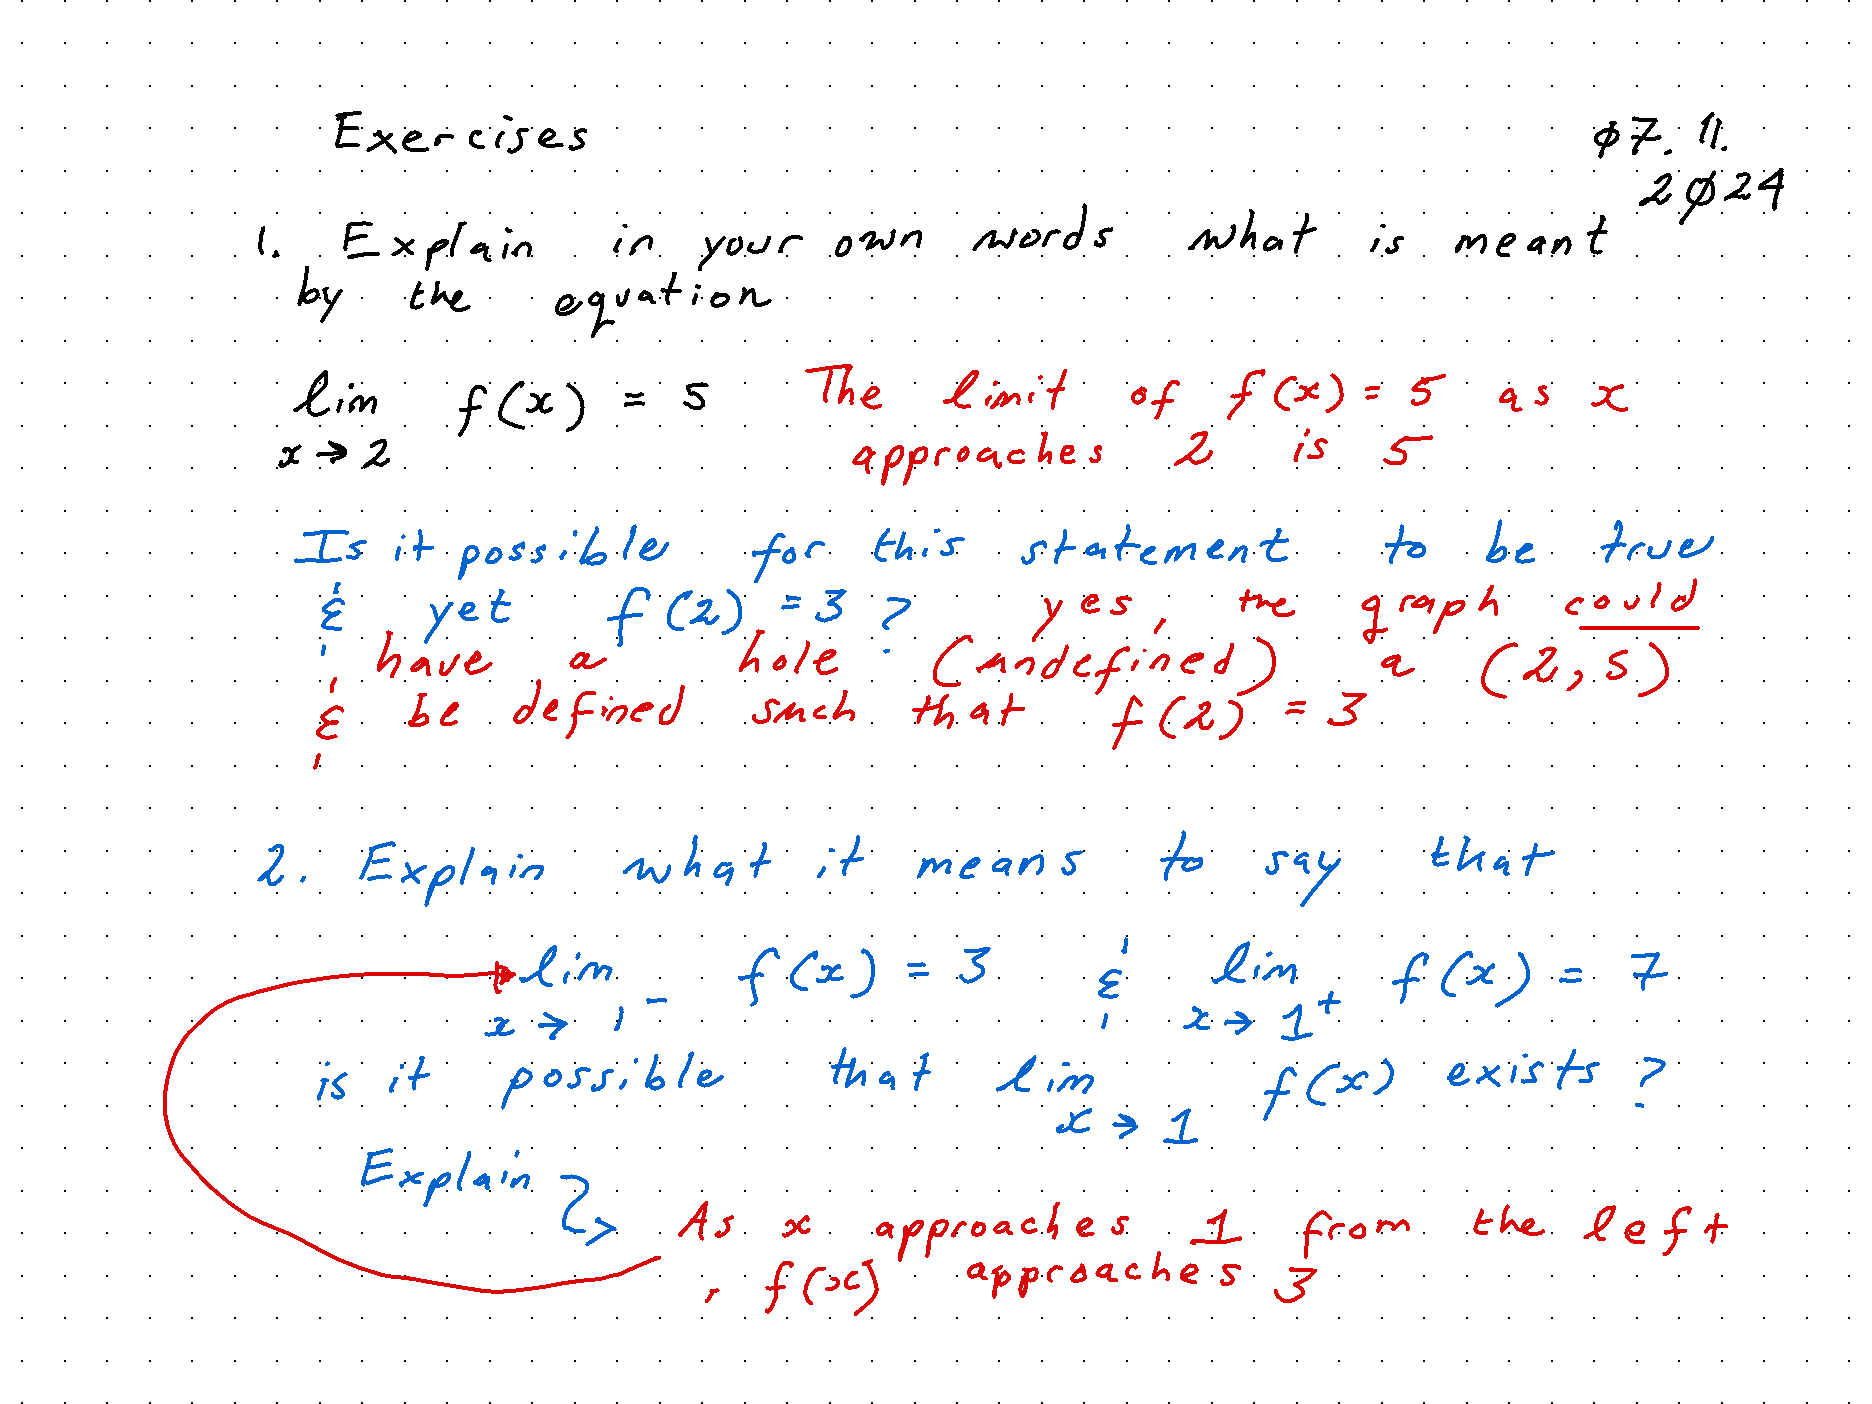 Exercises
07.11.
2024
1. Explain in your own words what is meant
by the equation
lim f(x) = 5 The limit of f(x) = 5 as x
x → 2 approaches 2 is 5
Is it possible for this statement to be true
& yet f(2) = 3 ? yes, the graph could
have a hole (undefined) a (2,5)
& be defined such that f(2) = 3
2. Explain what it means to say that
lim f(x) = 3 & lim f(x) = 7
x → 1⁻ x → 1⁺
is it possible that lim f(x) exists ?
x → 1
Explain
As x approaches 1 from the left
, f(x) approaches 3